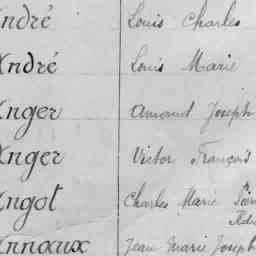 André Louis Charles
André Louis Marie
Anger Amand Joseph
Anger Victor François
Angot Charles Marie
Annoaux Jean Marie Joseph